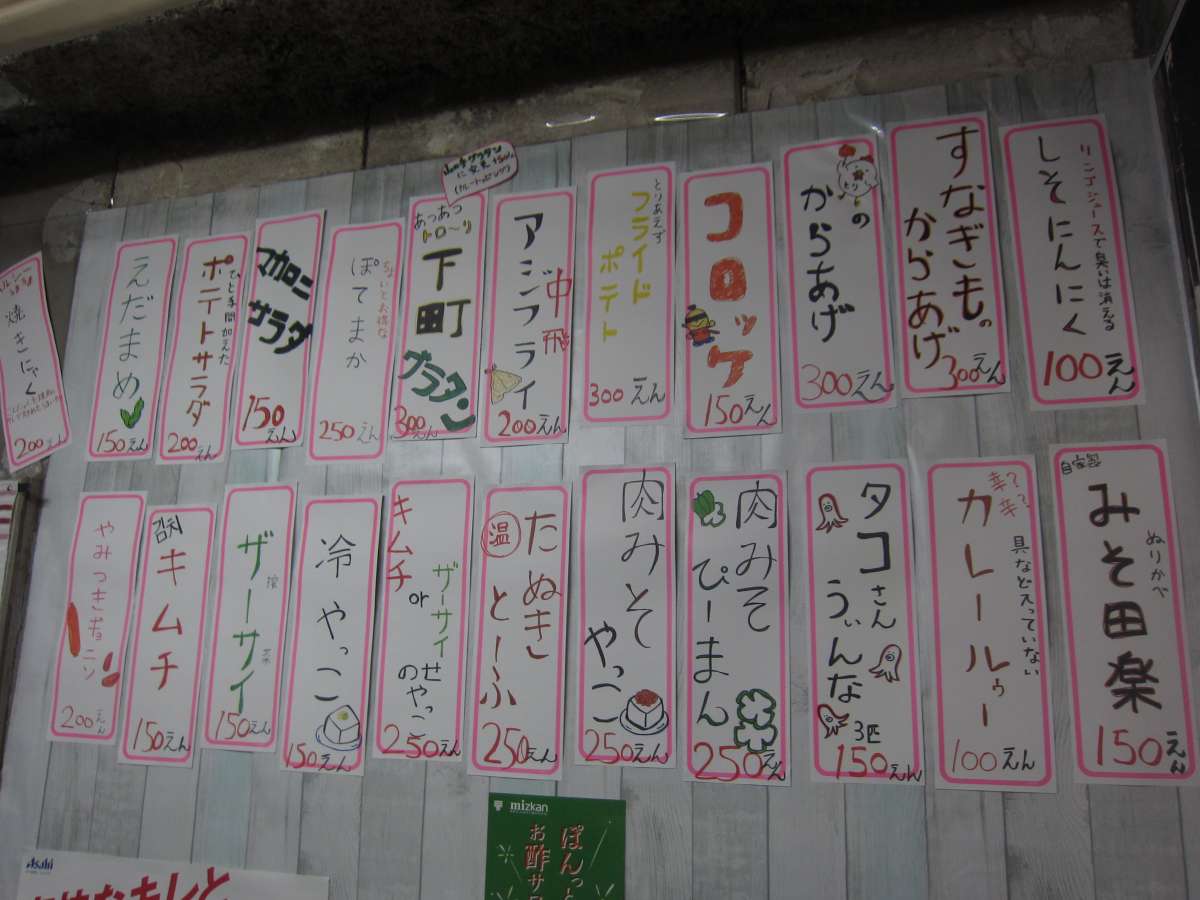 リンゴジュースで臭いは消える
しそにんにく
100えん
すなぎもの
からあげ
300えん
とりの
からあげ
300えん
コロッケ
150えん
とりあえず
フライド
ポテト
300えん
アジフライ
中飛
200えん
あつあつ
トロ〜り
下町
グラタン
300えん
山の手グラタン
に変更
ちょいとお得な
ぽてまか
250えん
マカロニ
サラダ
150えん
ひと手間加えた
ポテトサラダ
200えん
えだまめ
150えん
焼きにゃく
200えん
自家製
ぬりかべ
みそ田楽
150えん
辛?
辛?
具など入っていない
カレールゥー
100えん
タコさん
うぃんな
3匹
150えん
肉みそ
ぴーまん
250えん
肉みそ
やっこ
250えん
たぬき
温
とーふ
250えん
キムチ
or
ザーサイ
のせ
やっこ
250えん
冷やっこ
150えん
ザーサイ
搾
菜
150えん
김치
キムチ
150えん
やみつきギョニソ
200えん
mizkan
ぽんっと
お酢サ
Asahi